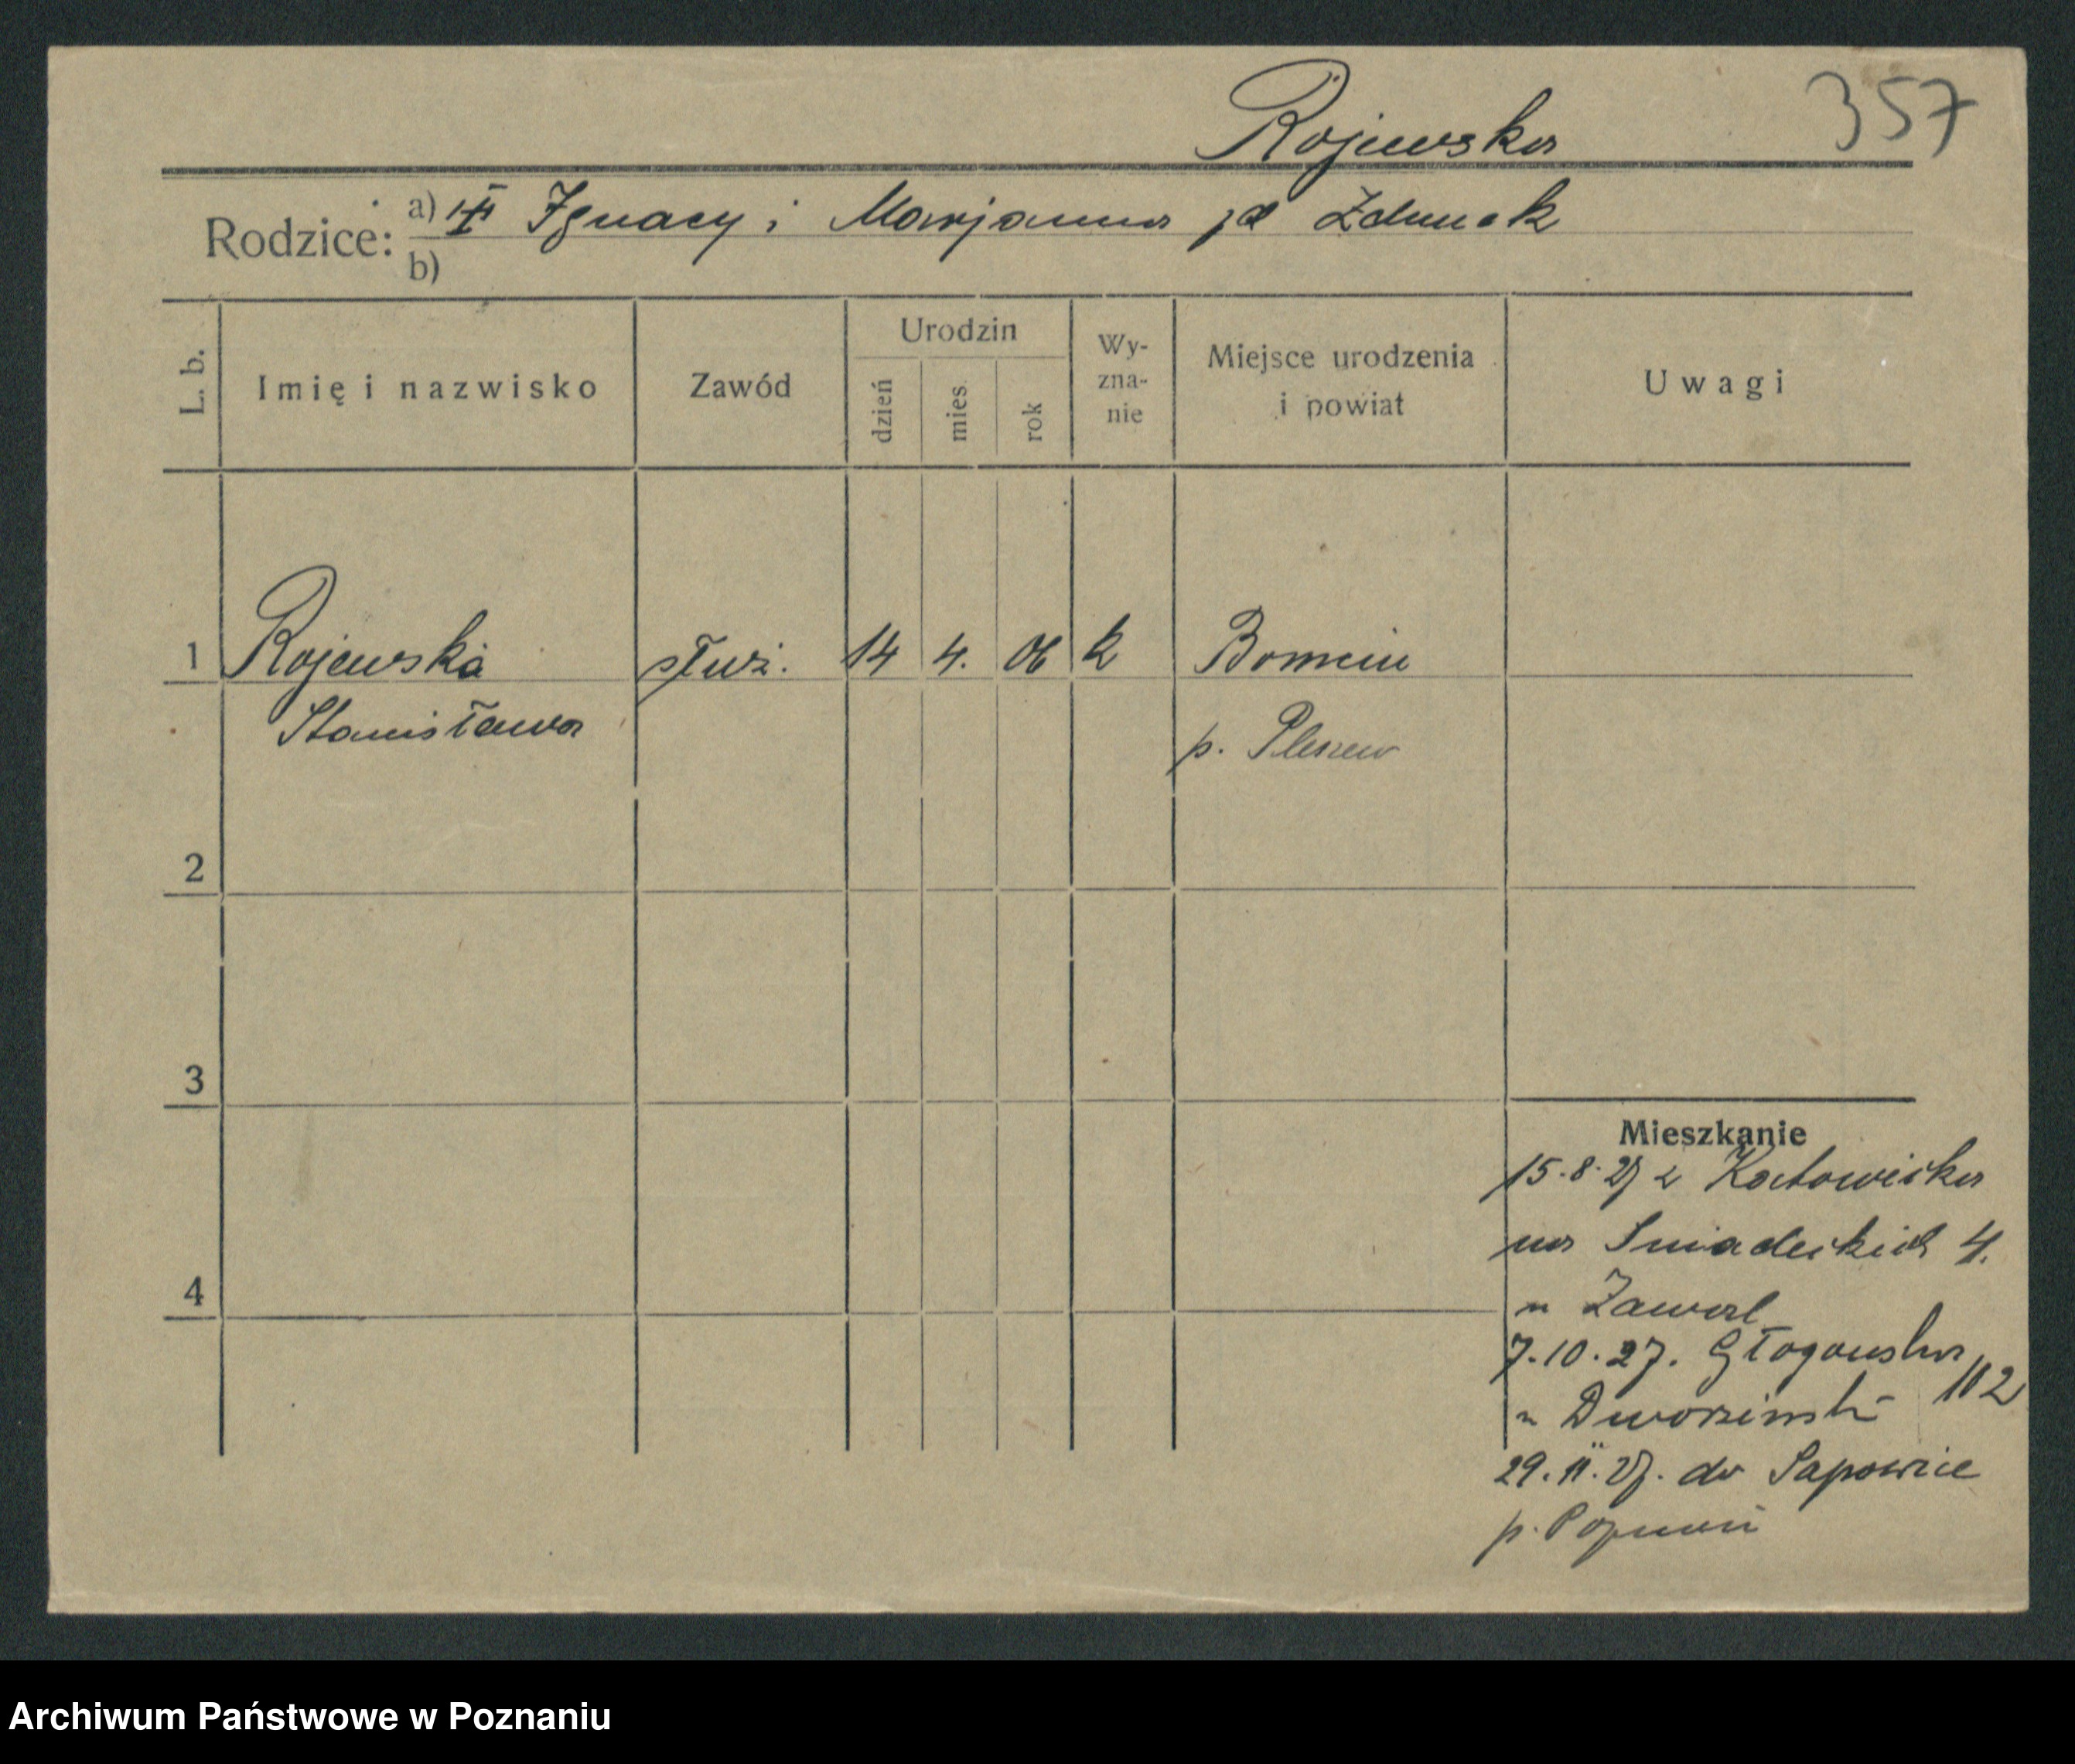 Rojewska 357
Rodzice: a) Ignacy i Marjanna zd Zdunek
b)
L. b. Imię i nazwisko Zawód Urodzin dzień mies. rok Wy-zna-nie Miejsce urodzenia i powiat Uwagi
1 Rojewska służ. 14 4. 06 k Bronów
Stanisława p. Pleszew
2
3
4
Mieszkanie
15.8.27 z Katowicka
na Sniadeckich 4.
u
7.10.27. Głogowska 102
u
29.11.27. do Sapowice
p. Poznań
Archiwum Państwowe w Poznaniu